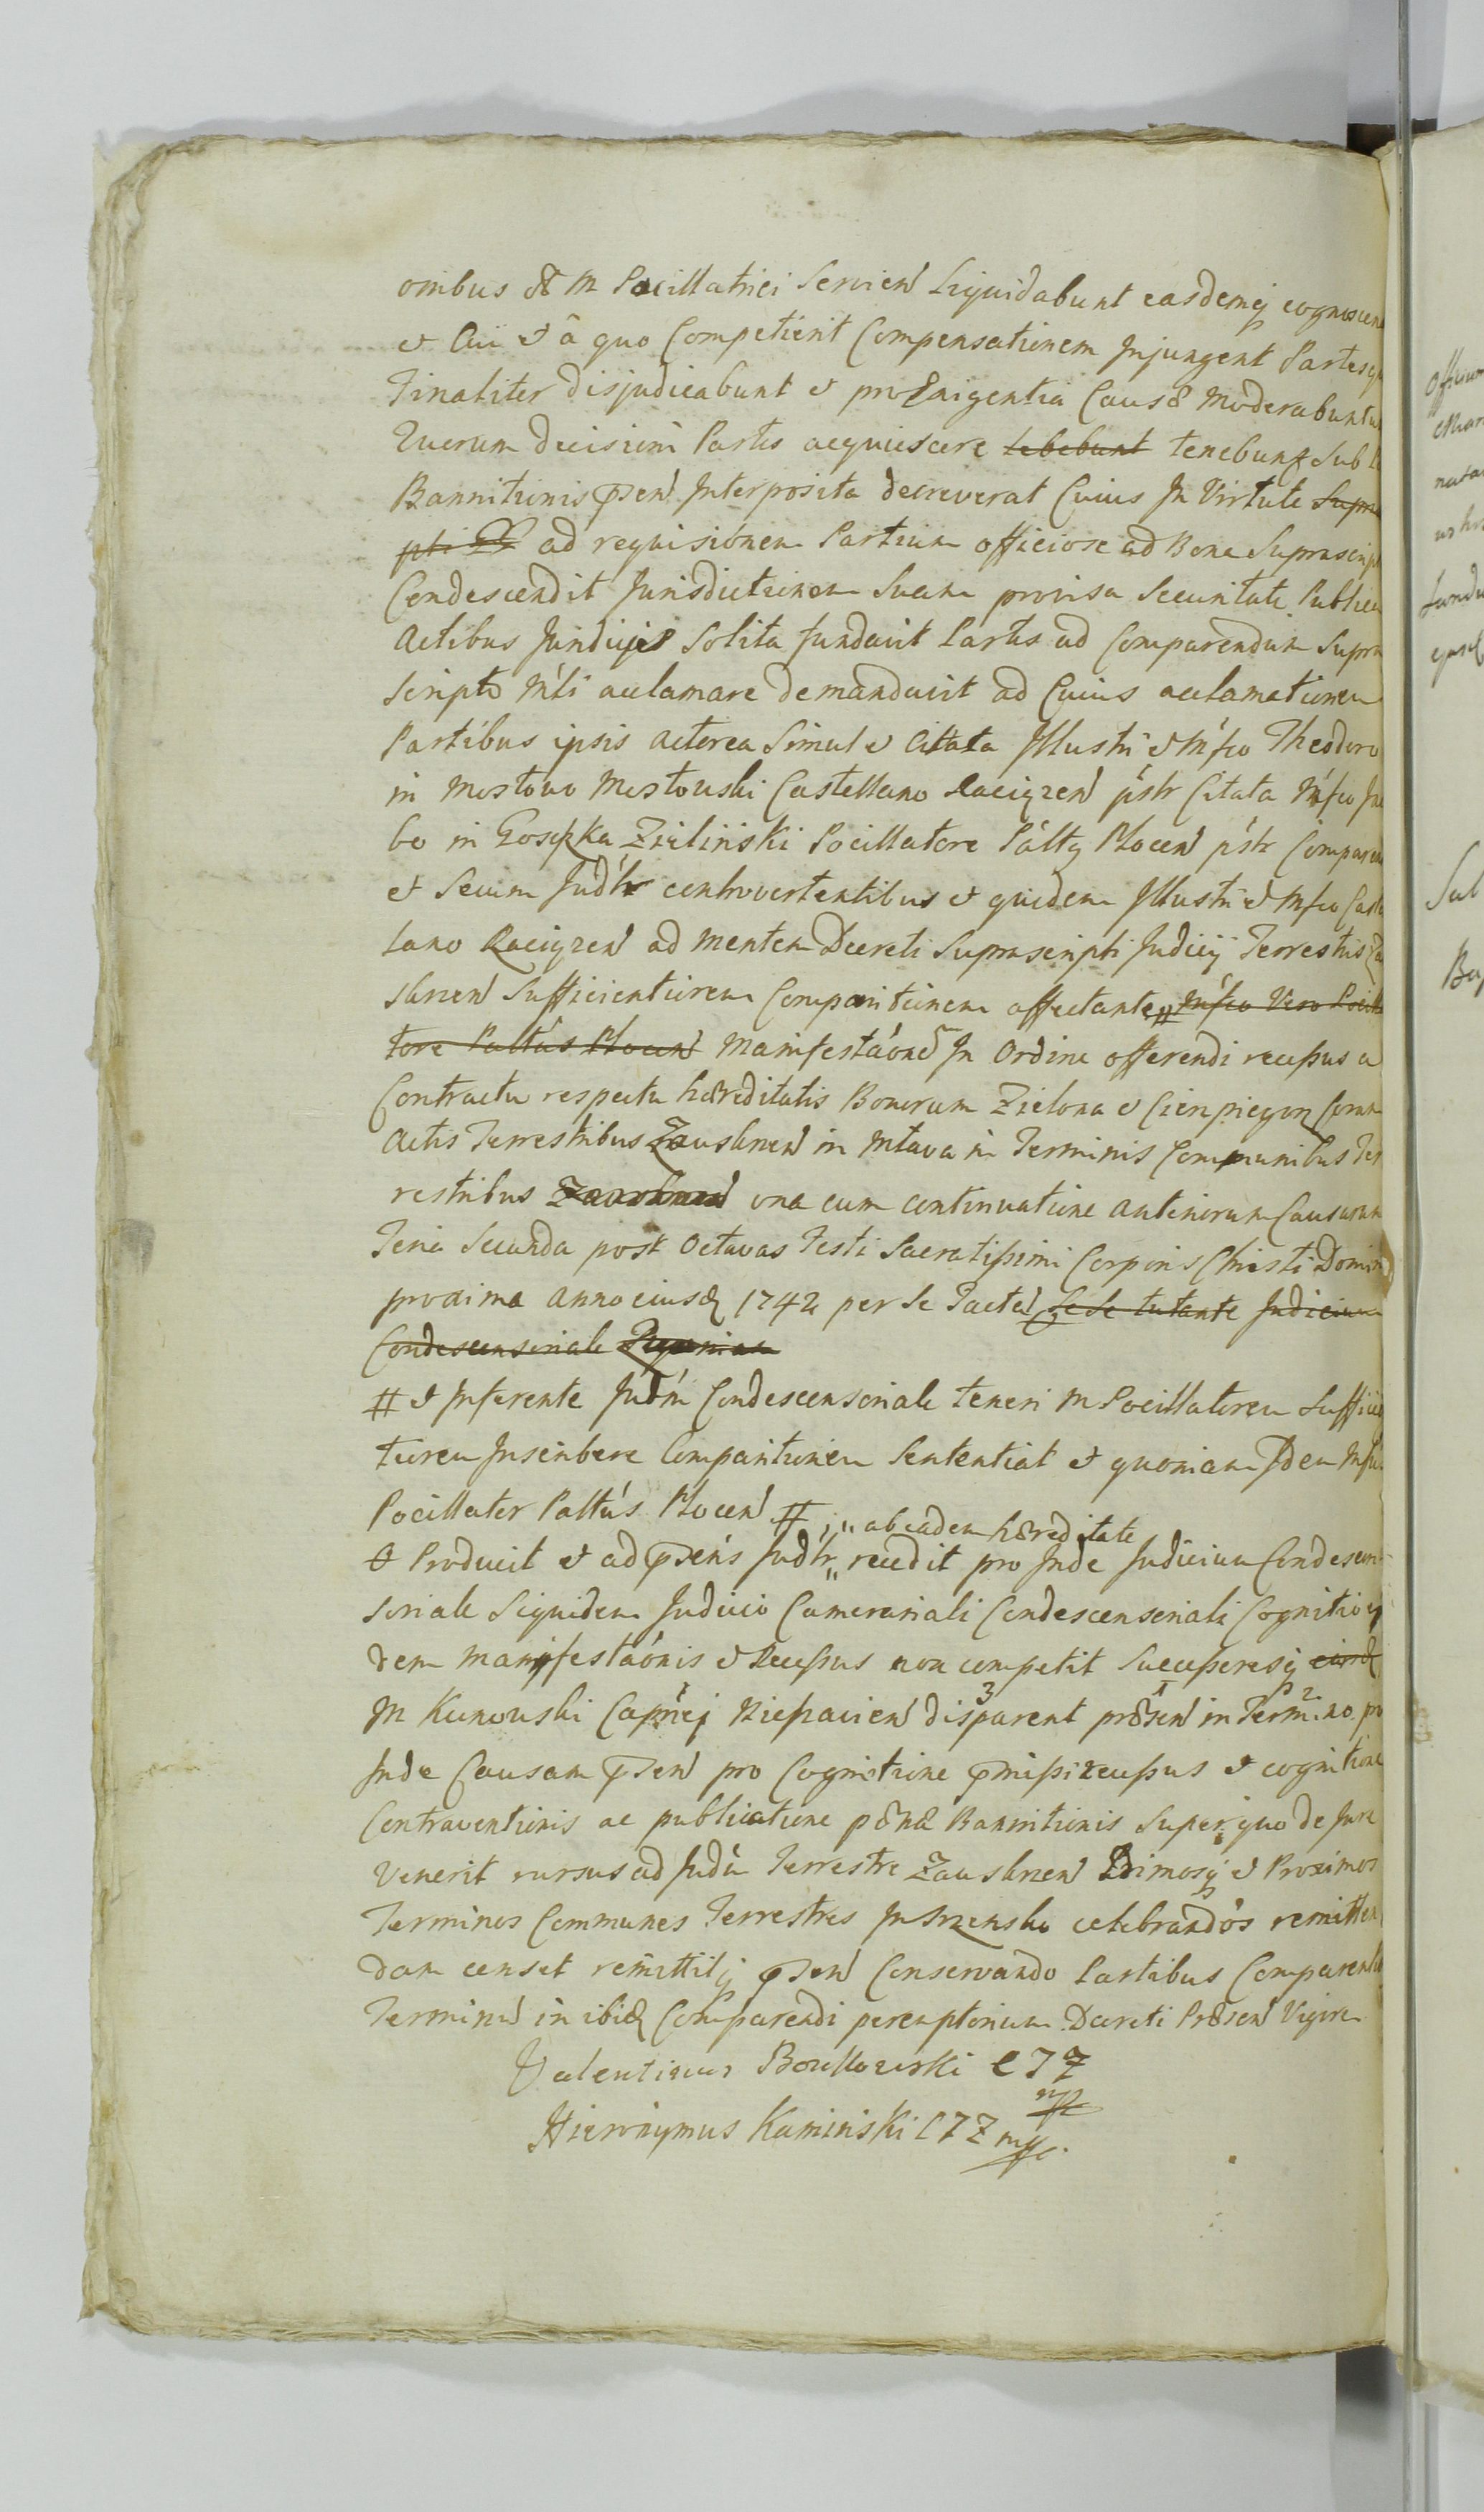 onibus et M Pocillatrici Servien Liquidabunt easdemq cognoscen
et Cui et â quo Competierit Compensationem Injungent Partesq
Finaliter disjudicabunt et pro Exigentia Causæ Moderabuntur
Quorum decisioni Partes acquiescere debebunt tenebunt Sub
Bannitionis pæen Interposita decreverat Cuius In Virtute Supra
pti ad requisitionem Partium officiose ad Bona Suprascript
Condescendit Jurisdictionem Suam provisa Securitate Publica
Actibus Judicijs Solita fundavit Partes ad Comparendum Supra
scripto Mli acclamare demandavit ad Cuius acclamationem
Partibus ipsis actorea Simul et Citata Illustri et Mfco Theodoro
in Mostowo Mostowski Castellano Raciązen pstr Citata Mfco Ja
bo in Gosczka Zieliński Pocillatore Palty Plocen pstr Comparen
et Secum Judtr controvertentibus et quidem Illustri et Mfco Caste
lano Raciązen ad mentem Decreti Suprascripti Judicij Terrestris Za
skrzen Sufficientiorem Comparitionem affectante, Mfco Vero Pocilla
tore Paltús Plocen Manifestáone In Ordine offerendi recessus a
Contractu respectu hæreditatis Bonorum Zielona et Cienpiegon Coram
Actis Terrestribus Zawskrzen in Mlava in Terminis Communibus Ter
restribus Zawskrzen una cum continuatione anteriorum Causarum
Feria Secunda post Octavas Festi Sacratissimi Corporis Christi Domini
proxima Anno eiusd 1742 per Se Facta Sese tutante Judicium
Condescensoriale Quoniam
# et Inferente Judm Condescensoriale teneri M Pocillatorem Sufficien
tiorem Inscribere Comparitionem Sententiat et quoniam Idem Mfcu
Pocillator Paltús Plocen #
" ab eadem hæreditate
O Producit et ad præns Judtr " recedit pro Inde Judicium Condescen
soriale Siquidem Judicio Camerariali Condescensoriali Cognitio eju
dem manifestaónis et Recessus non competit Successoresq eiusd
M Kunowski Capnej Nieszavien disparent præsen in Termino pro
Inde Causam præsen pro Cognitione præmissi recessus et cognitione
Contraventionis ac publicatione pænæ Bannitionis Super quo de Jure
Venerit rursus ad Judm Terrestre Zawskrzen Primosq et Proximos
Terminos Communes Terrestres In Szrensko celebrandos remitten
dam censet remittitq præsen Conservando Partibus Comparentib
Terminu in ibid Comparendi peremptorium Decreti Præsen Vigore
Valentinus Boxkowski C T Z
mp
Hieronymus Kaminski C T Z mp.